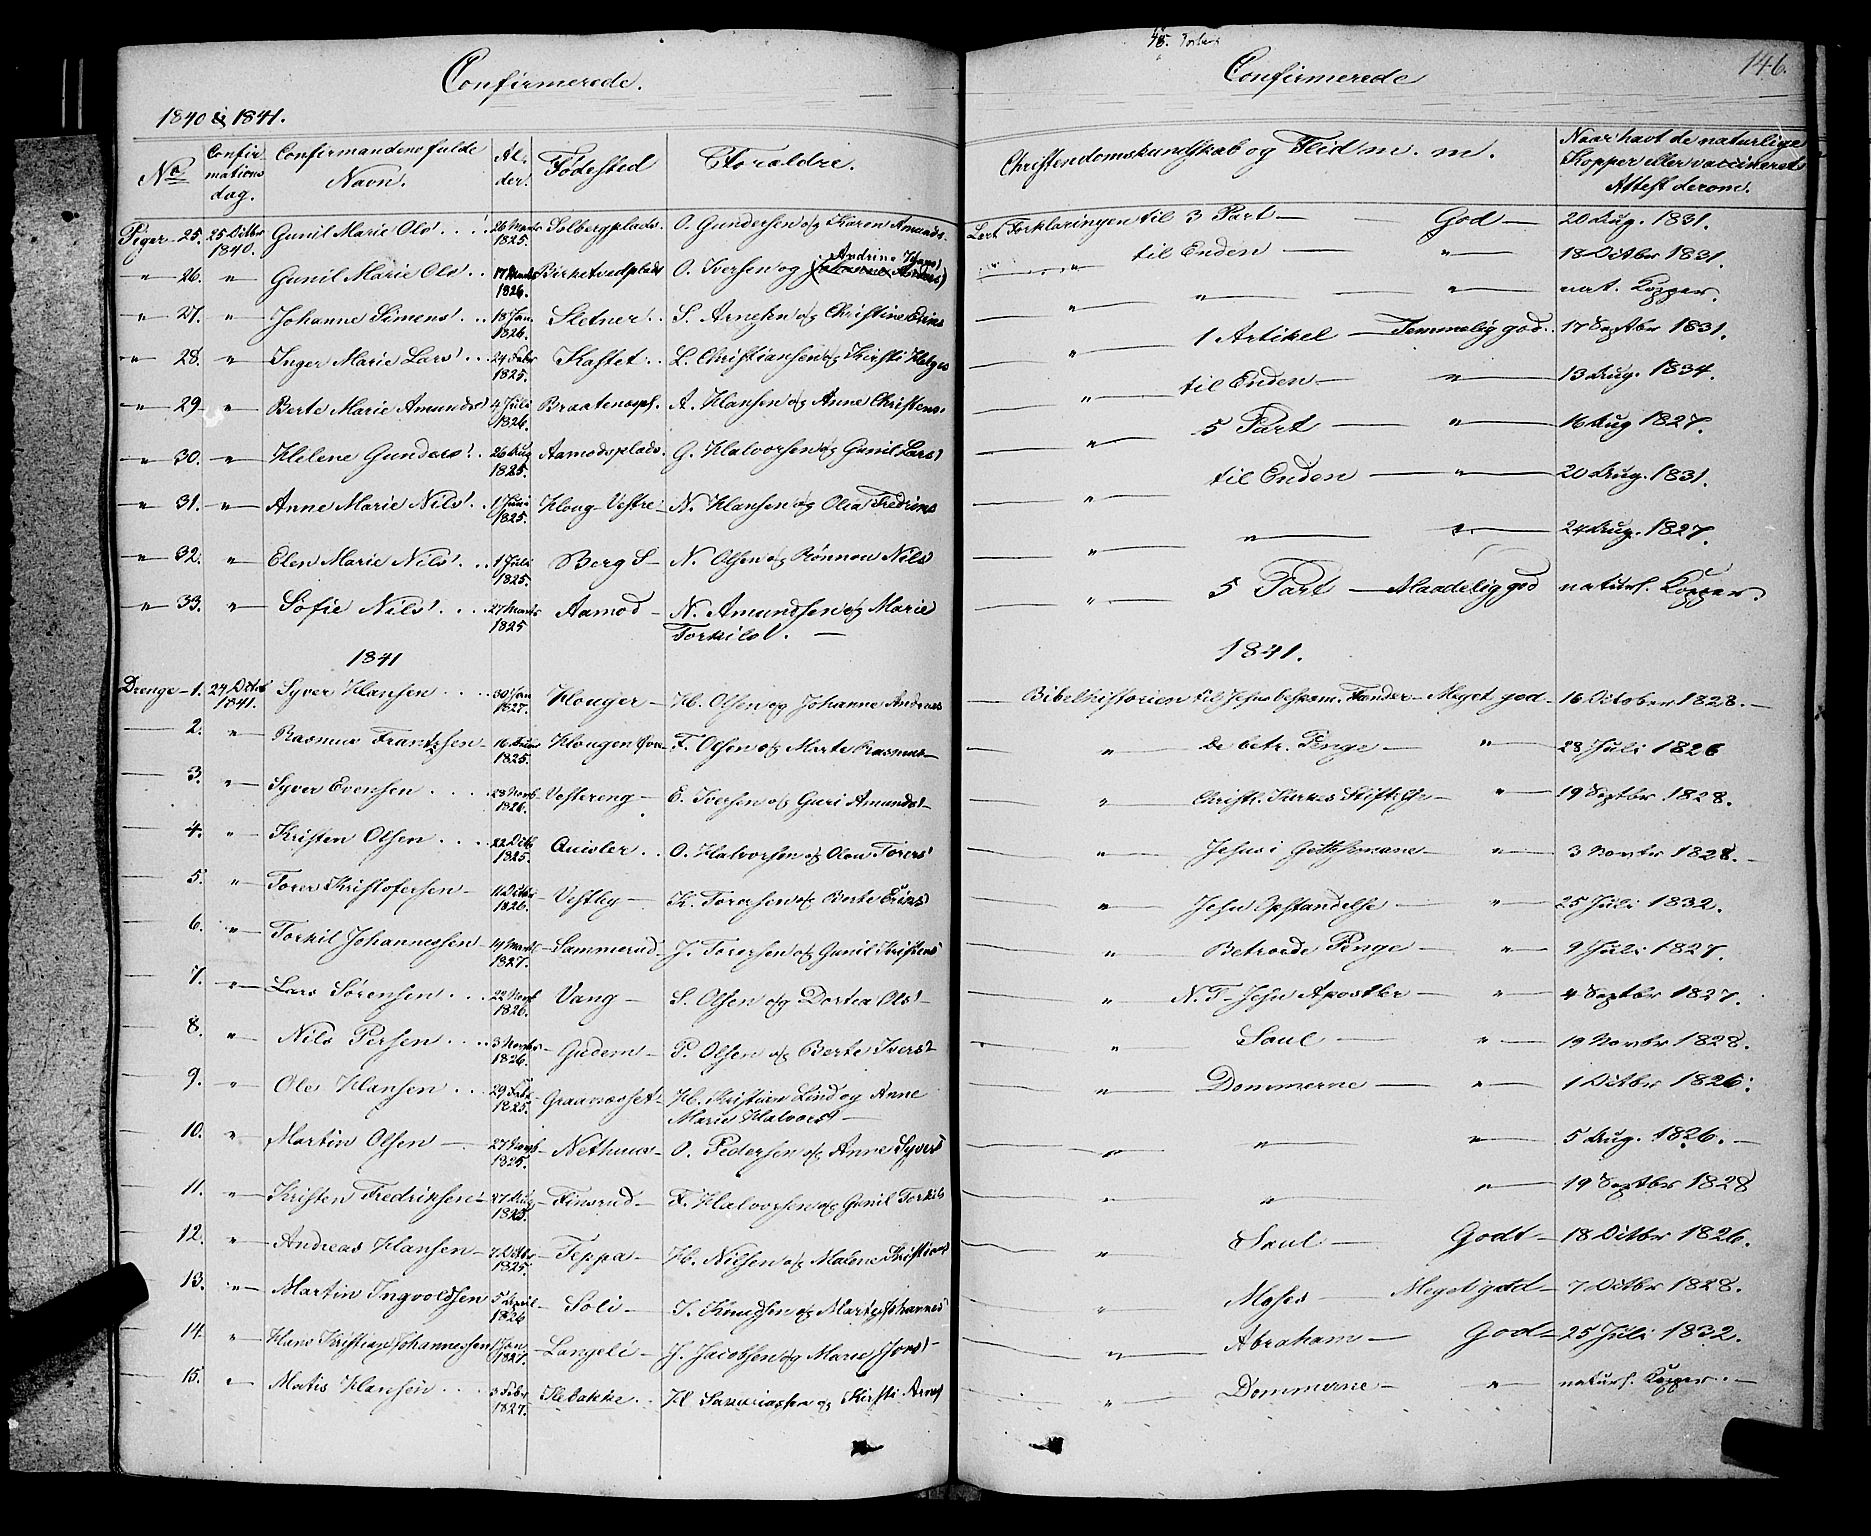 Confirmerede.
1840 & 1841.
No Confirmations dag. Confirmandens fulde Navn. Alder. Fødested Foraldre.
Piger - 25. 25 Octbr 1840. Gunil Marie Ols' 26 Marts 1825. Solbergplads. O. Gundersen og Karen Amunds.
" 26. " Gunil Marie Ols' 17 Marts 1826. Birketvedtplads O. Iversen og Andrine
" 27. " Johanne Simens' 18 Jan 1826. Sletner S. Arnesen og Christine
" 28. " Inger Marie Lars' 24 Febr 1825. Kastet L. Christiansen og Kirsti Helges
" 29 " Berte Marie Amunds' 4 Juli 1826. Braatenspl. A. Hansen og Anne Christens.
" 30. " Helene Gunders' 26 Aug 1825. Aamodsplads. G. Halvorsen og Gunil Lars'
" 31. " Anne Marie Nils' 1825. Houg Vestre N. Hansen og Olea Fredriks
" 32. " Elen Marie Nils' 1 Juli 1825. Berg S N. Olsen og Rønnou Nils'
" 33. " Sofie Nils' 27 Marts 1825 Aamod N. Amundsen og Marie
Torkils'.
1841
Drenge - 1. 24 Octb 1841. Syver Hansen 30 Jan 1827. Houger H. Olsen og Johanne Andreas
2. " Rasmus Frantzsen 1825. Hougen F. Olsen og Marte Rasmus
3. " Syver Evensen 1826. Vestereng E. Iversen og Guri Amunds'
4. " Kristen Olsen 22 Octb 1825. Quisler O. Halvorsen og Olea Torers'
5. " Torer Kristofersen 11 Octbr 1826. Vestby K. Torersen og Berte
6. " Torkil Johannessen 14 Marts 1827. Sammerud J. Torersen og Gunil Kristens'
7. " Lars Sørensen 22 Novb 1826. Vang S. Olsen og Dortea Ols'
8. " Nils Persen 3 Novbr 1826. Gudem P. Olsen og Berte Ivers'
9. " Ole Hansen 1825. Graanæsset H. Kristian Lind og Anne
Marie Halvors'
10. " Martin Olsen 27 Novb 1825. Nethuus O. Pedersen og Anne Syvers'
11. " Kristen Fredriksen 27 Aug Finsrud F. Halvorsen og Gunil Torkils
12. " Andreas Hansen 7 Octbr 1825. Teppa H. Nilsen og Malene Kristians
13. " Martin Ingvoldsen 5 April 1826 Soli I. Knudsen og Marte Johannes'
14. " Hans Kristian Johannessen 1 Jan 1827. Langeli J. Jacobsen og Marie Jons'
15. " Matis Hansen 3 Febr 1827. Slebakke H. Zakariassen og Kirsti Arnes'
Confirmerede
146.
Christendomskundskab og Flid m. m. Naar havt de naturlige Kopper eller vaccineret Attest derom.
Lært Forklaringen til 3 Part God 20 Aug. 1831.
" til Enden " 18 Octbr 1831.
" " " nat. Kopper.
" 1 Artikel Temmelig god. 17 Septbr 1831.
" til Enden " 13 Aug. 1834.
" 5 Part " 16 Aug 1827.
" til Enden " 20 Aug. 1831.
" " " 24 Aug. 1827.
" 5 Part Maadelig god naturl. Kopper.
1841.
Bibelhistorien til Jesus Meget god 16 October 1828.
" de betr. Penge " 28 Juli 1826
" Christi Kirkes Stiftelse " 19 Septbr 1828.
" Jesus i Gethsemane " 3 Novbr 1828.
" Jesu Opstandelse " 25 Juli 1832.
" Betroede Penge " 9 Juli 1827.
" N. T. Jesu Apostler " 4 Septbr 1827.
" Saul " 19 Novbr 1828.
" Dommerne " 1 Octbr 1826.
" " " 5 Aug. 1826.
" " " 19 Septbr 1828
" Saul Godt 18 Octbr 1826.
" Moses Meget godt 7 Octbr 1828.
" Abraham God 25 Juli 1832.
" Dommerne " naturl. Kopper.